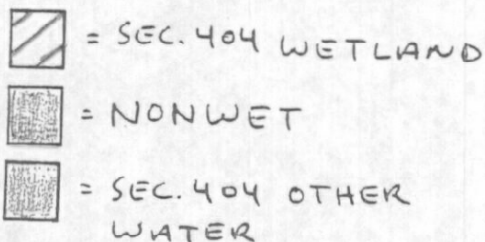 = SEC. 404 WETLAND
= NONWET
= SEC. 404 OTHER
WATER